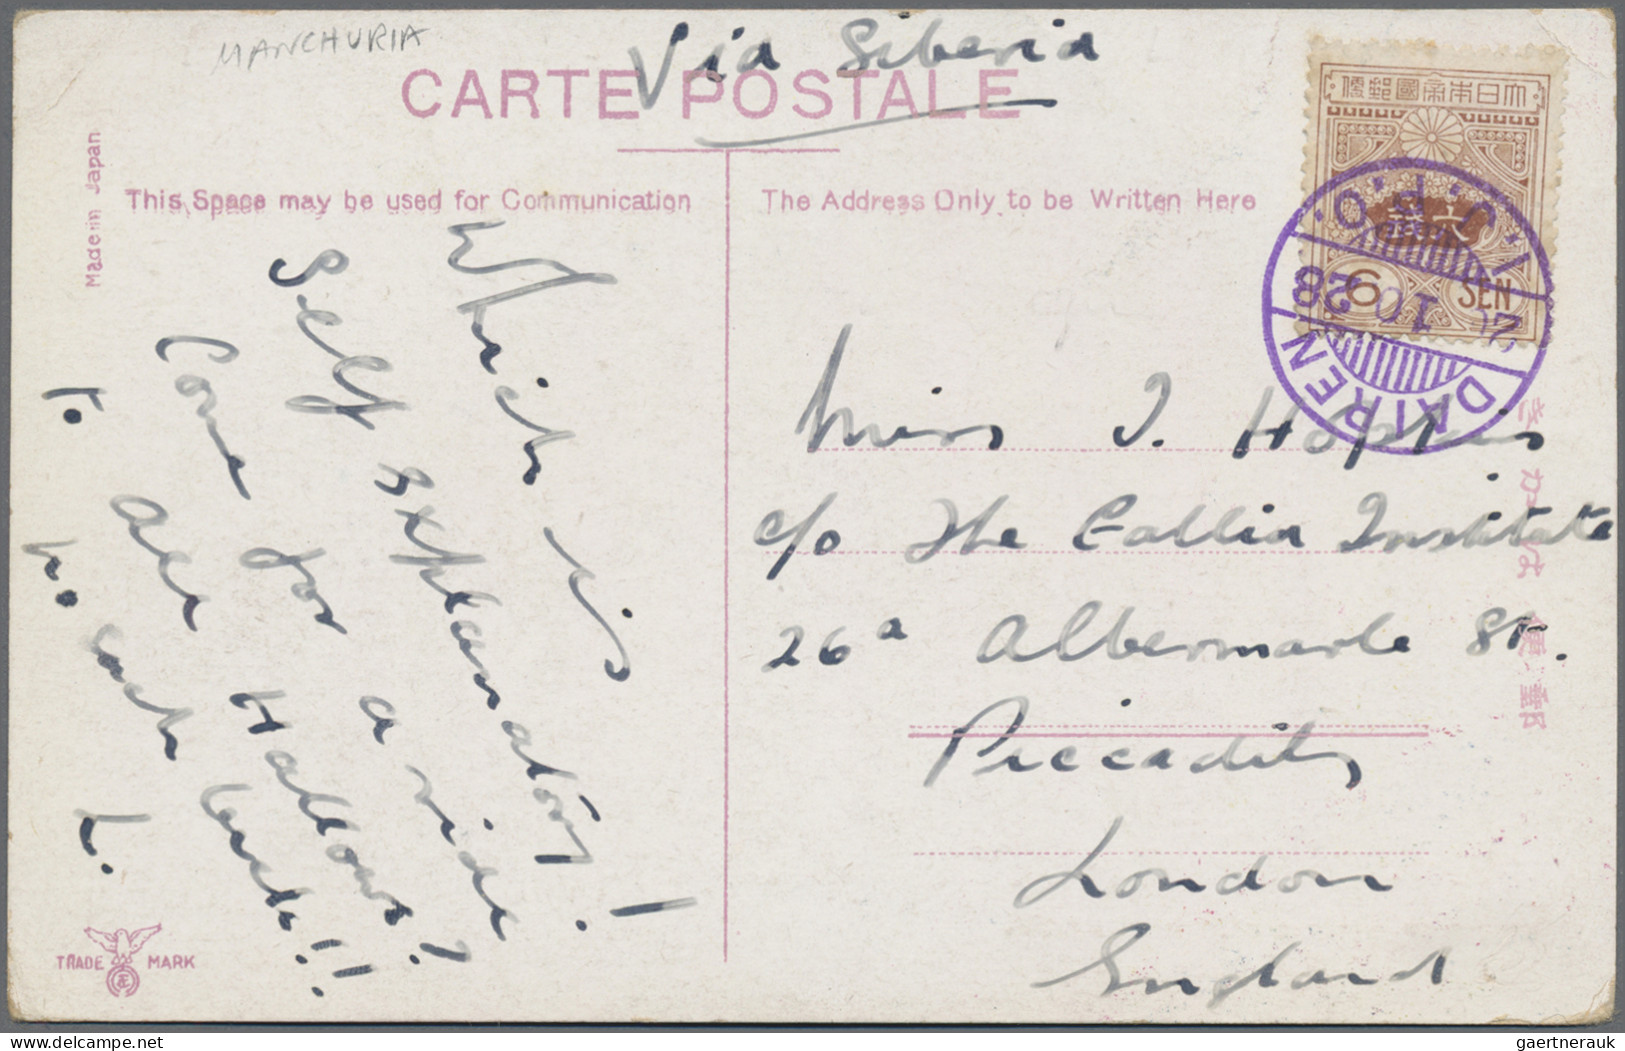 MANCHURIA
Via Siberia
CARTE POSTALE
Made in Japan
This Space may be used for Communication
The Address Only to be Written Here
大日本帝國郵便
六錢
6 SEN
I.J.P.O.
10 28
DAIREN
きかは便郵
Which is
self explanatory!
Come for a ride
To All Hallows?
No such luck!!
L.
Miss J. Hopkins
c/o The Callia Institute
26a Albermarle St.
Piccadilly
London
England
TRADE MARK
gaertnerauk